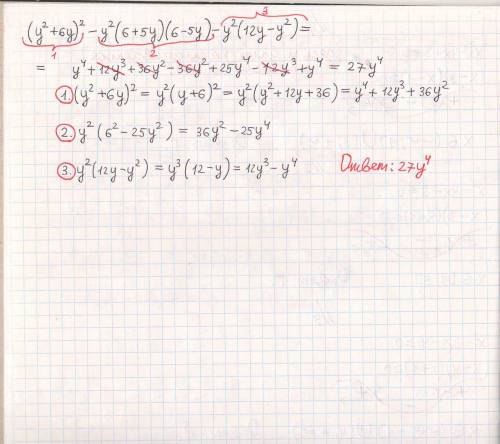 3
(y²+6y)² - y²(6+5y)(6-5y) - y²(12y-y²) =
1 2
= y⁴+12y³+36y²-36y²+25y⁴-12y³+y⁴ = 27y⁴
1. (y²+6y)² = y²(y+6)² = y²(y²+12y+36) = y⁴+12y³+36y²
2. y²(6²-25y²) = 36y²-25y⁴
3. y²(12y-y²) = y³(12-y) = 12y³-y⁴ Ответ: 27y⁴